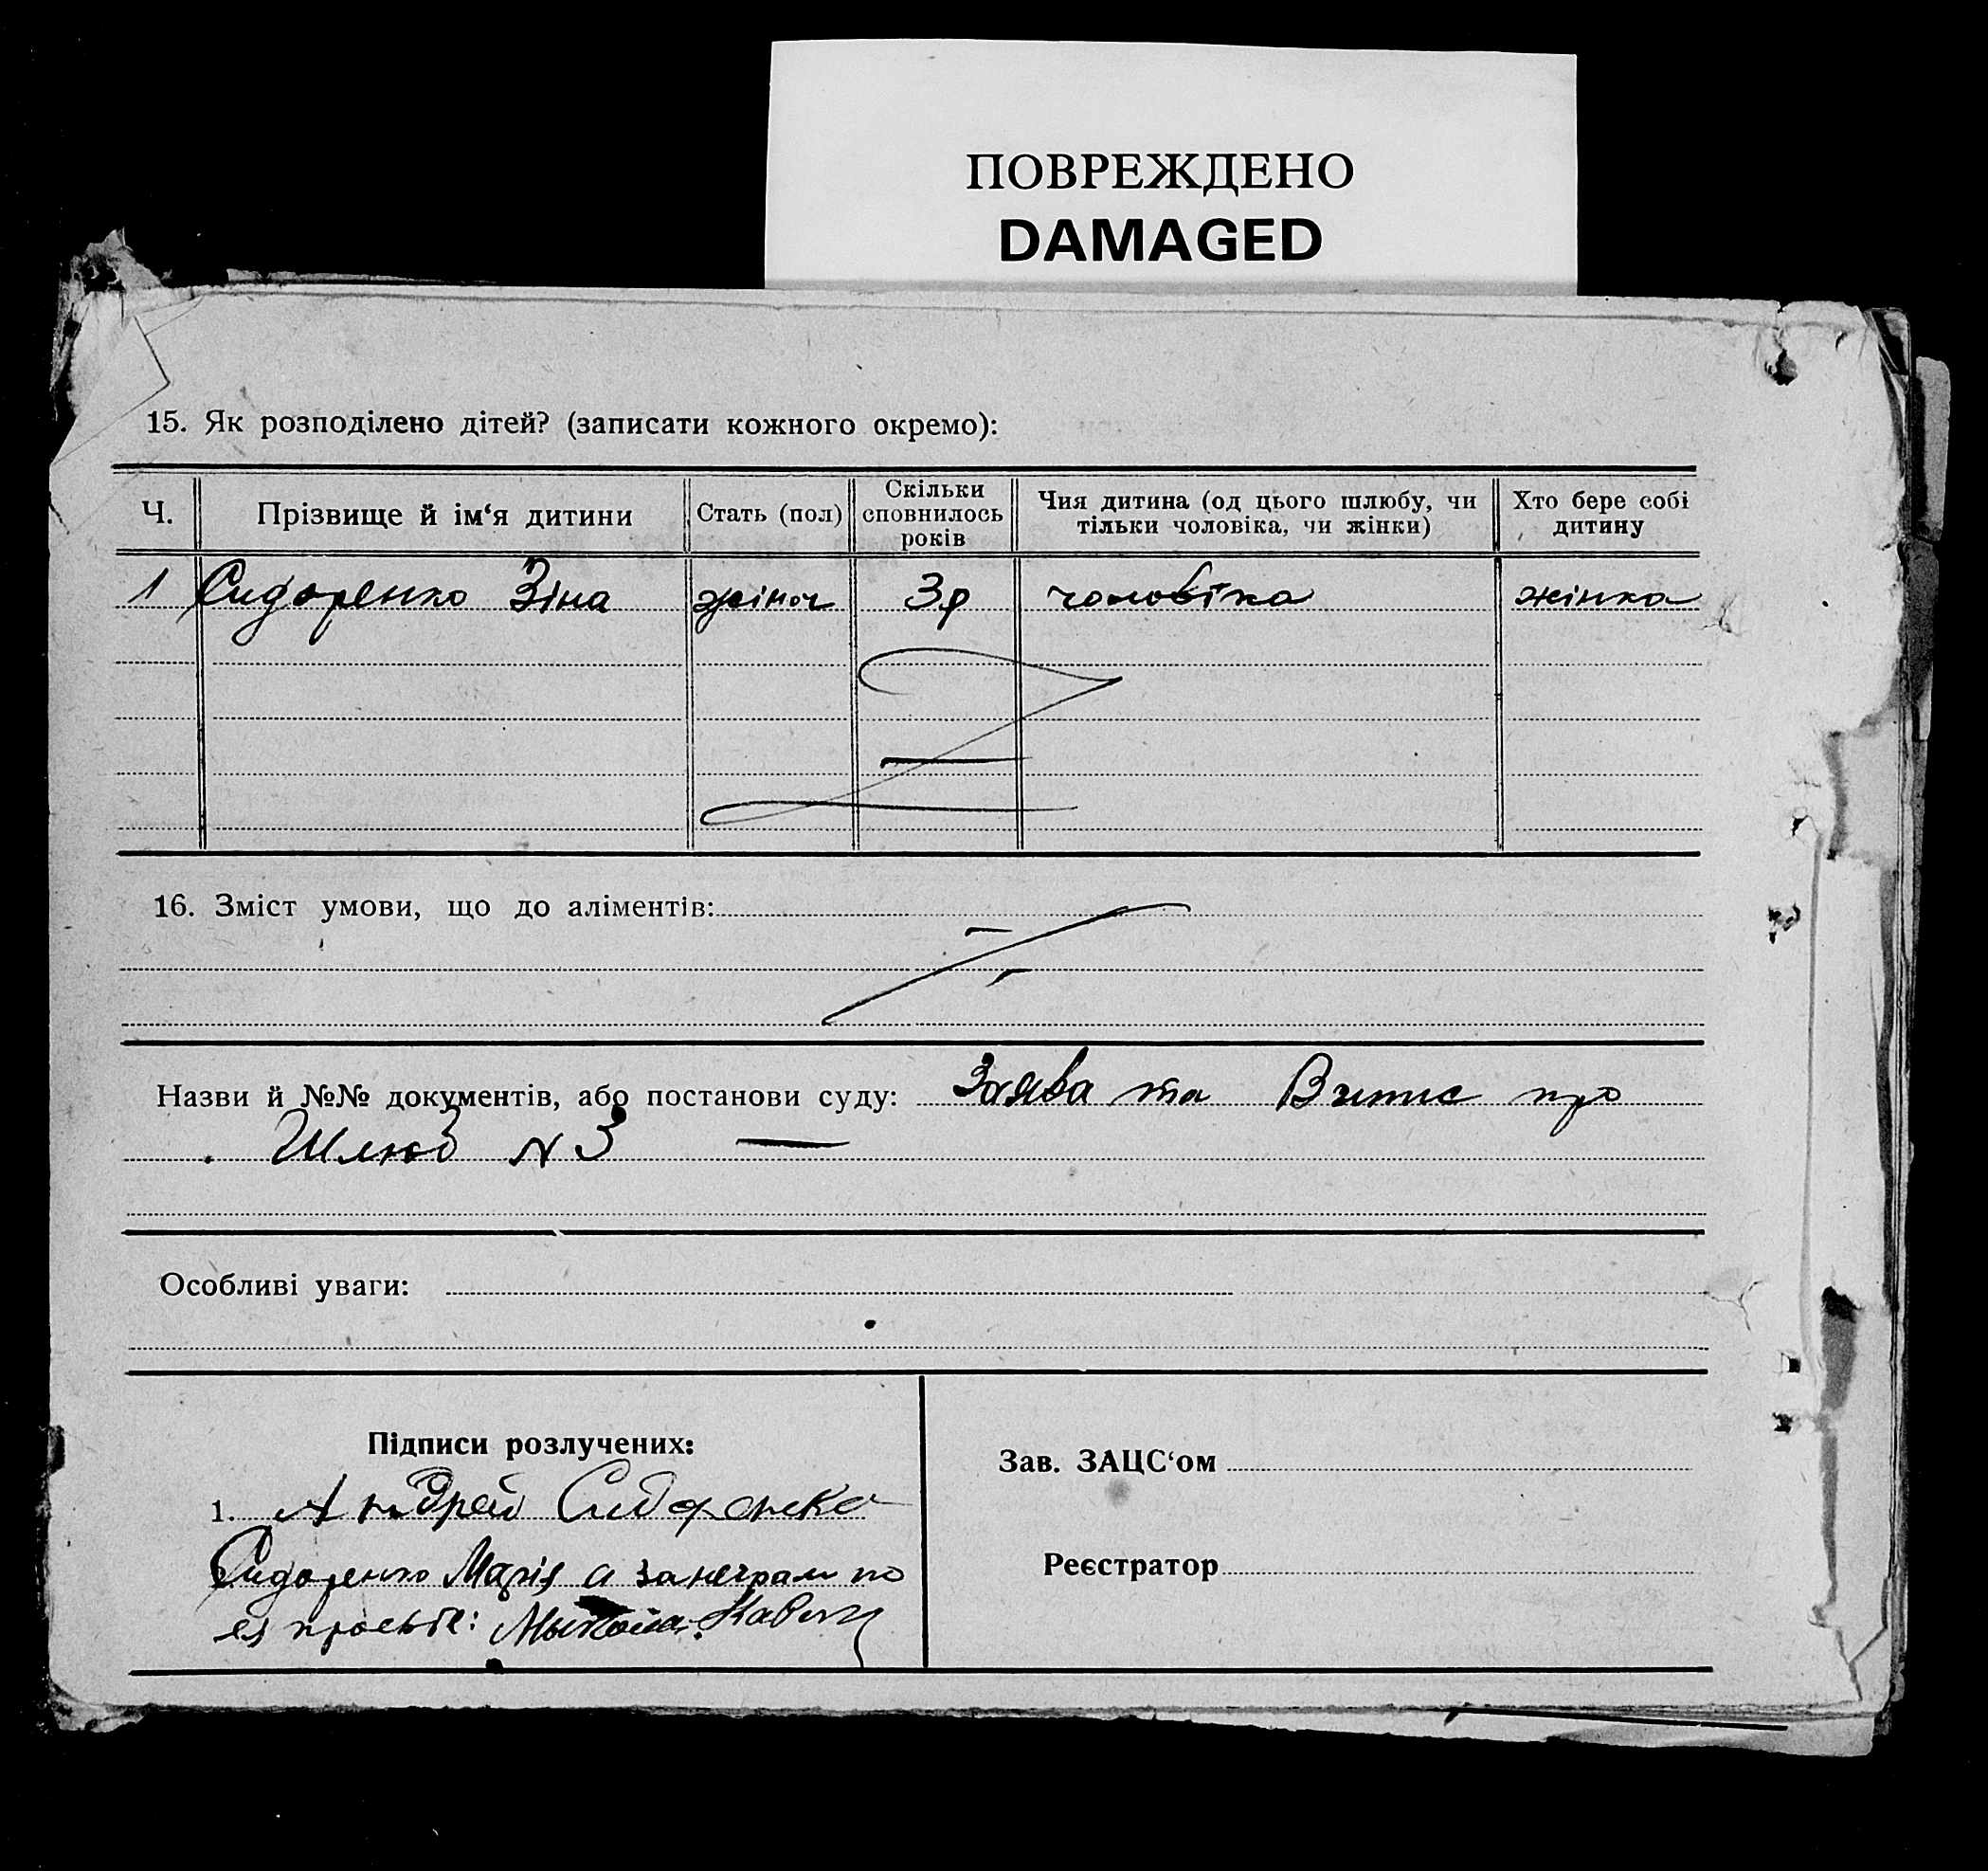 ПОВРЕЖДЕНО
DAMAGED
15. Як розподілено дітей? (записати кожного окремо):
Ч. Прізвище й ім‘я дитини Стать (пол) Скільки сповнилось років Чия дитина (од цього шлюбу, чи тільки чоловіка, чи жінки) Хто бере собі дитину
1 Сидоренко Зіна жіноч 3р чоловіка жінка
16. Зміст умови, що до аліментів:
Назви й №№ документів, або постанови суду: Заява та Витис про
Шлюб N 3
Особливі уваги:
Підписи розлучених:
1. Андрей Сидоренко
Сидоренко Марія а за неграм по
ея просьбе: Микола
Зав. ЗАЦС‘ом
Реєстратор